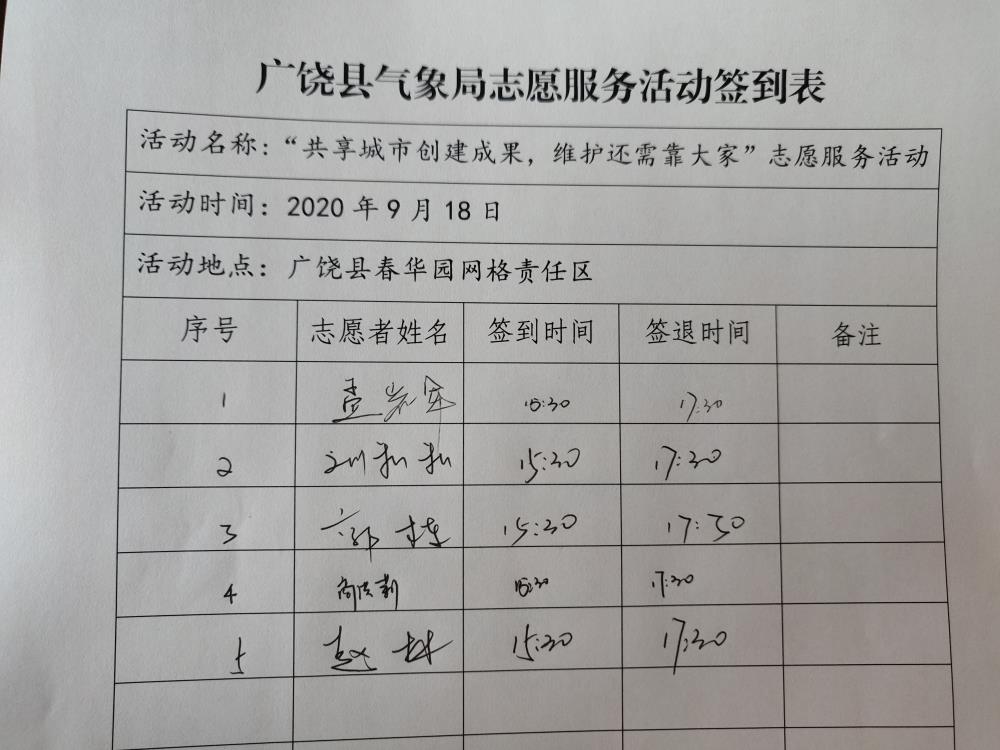 广饶县气象局志愿服务活动签到表
活动名称：“共享城市创建成果，维护还需靠大家”志愿服务活动
活动时间：2020 年 9 月 18 日
活动地点：广饶县春华园网格责任区
序号 志愿者姓名 签到时间 签退时间 备注
1 15:30 17:30
2 15:30 17:30
3 郭栋 15:30 17:30
4 15:30 17:30
5 赵林 15:30 17:30